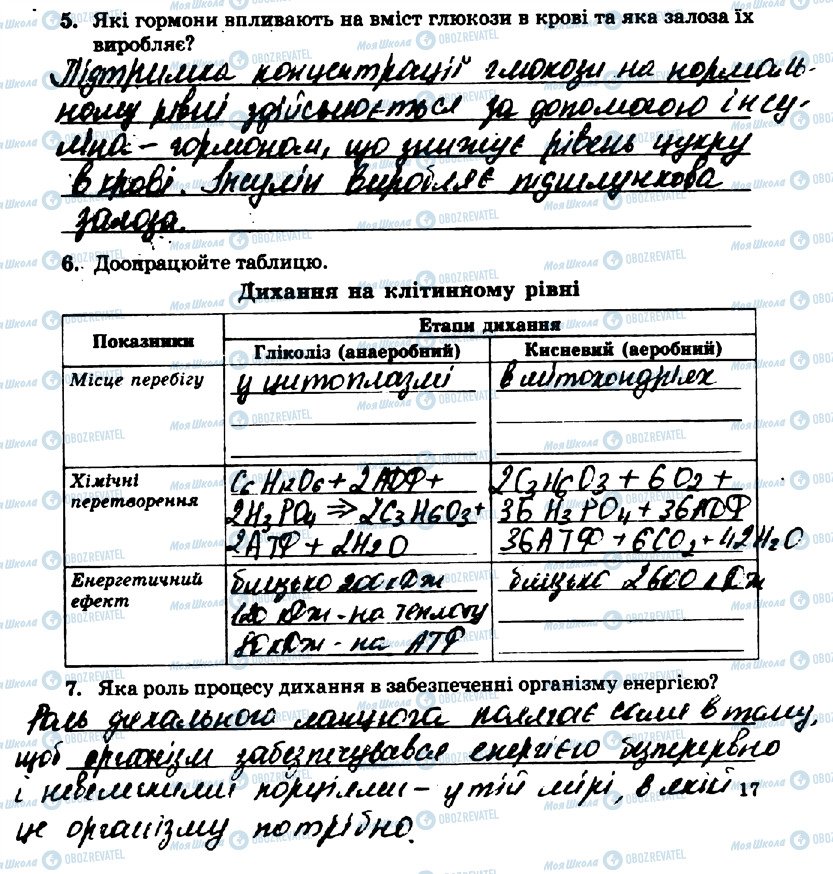 5. Які гормони впливають на вміст глюкози в крові та яка залоза їх
виробляє?
Підтримка концентрації глюкози на нормаль-
ному рівні здійснюється за допомогою інсу-
ліна - гормоном, що знижує рівень цукру
в крові. Інсулін виробляє підшлункова
залоза.
6. Доопрацюйте таблицю.
Дихання на клітинному рівні
Показники
Етапи дихання
Гліколіз (анаеробний) Кисневий (аеробний)
Місце перебігу у цитоплазмі в мітохондріях
Хімічні C6H12O6 + 2АДФ + 2C3H6O3 + 6O2 +
перетворення 2H3PO4 => 2C3H6O3 + 36 H3PO4 + 36АДФ
2АТФ + 2H2O 36АТФ + 6CO2 + 42H2O
Енергетичний близько 200 кДж близько 2600 кДж
ефект 120 кДж - на теплоту
80 кДж - на АТФ
7. Яка роль процесу дихання в забезпеченні організму енергією?
Роль дихального ланцюга полягає саме в тому
щоб організм забезпечувався енергією безперервно
і невеликими порціями - у тій мірі, в якій
17
це організму потрібно.